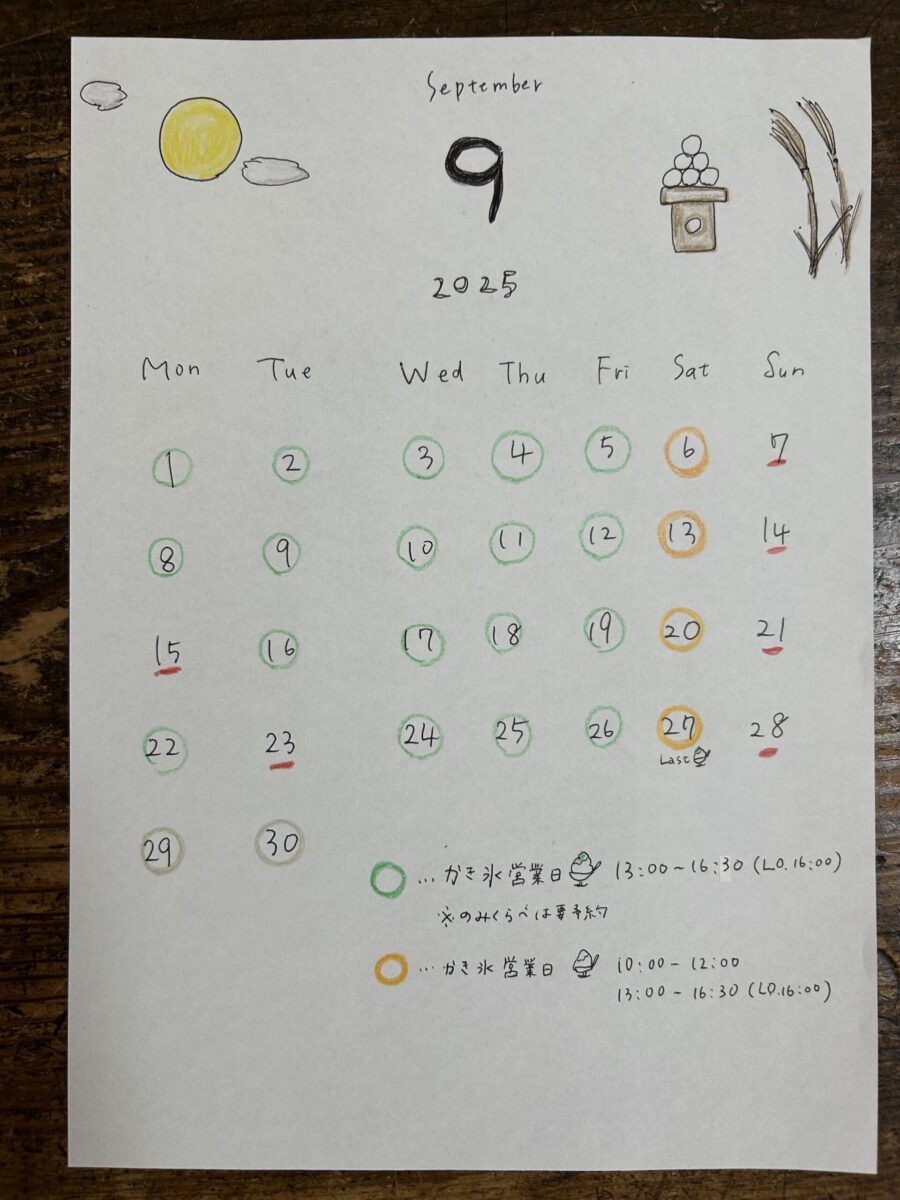 September
9
2025
Mon Tue Wed Thu Fri Sat Sun
1 2 3 4 5 6 7
8 9 10 11 12 13 14
15 16 17 18 19 20 21
22 23 24 25 26 27 28
Last
29 30
… かき氷営業日 13:00~16:30 (L.O.16:00)
※のみくらべは要予約
… かき氷営業日 10:00-12:00
13:00-16:30 (L.O.16:00)